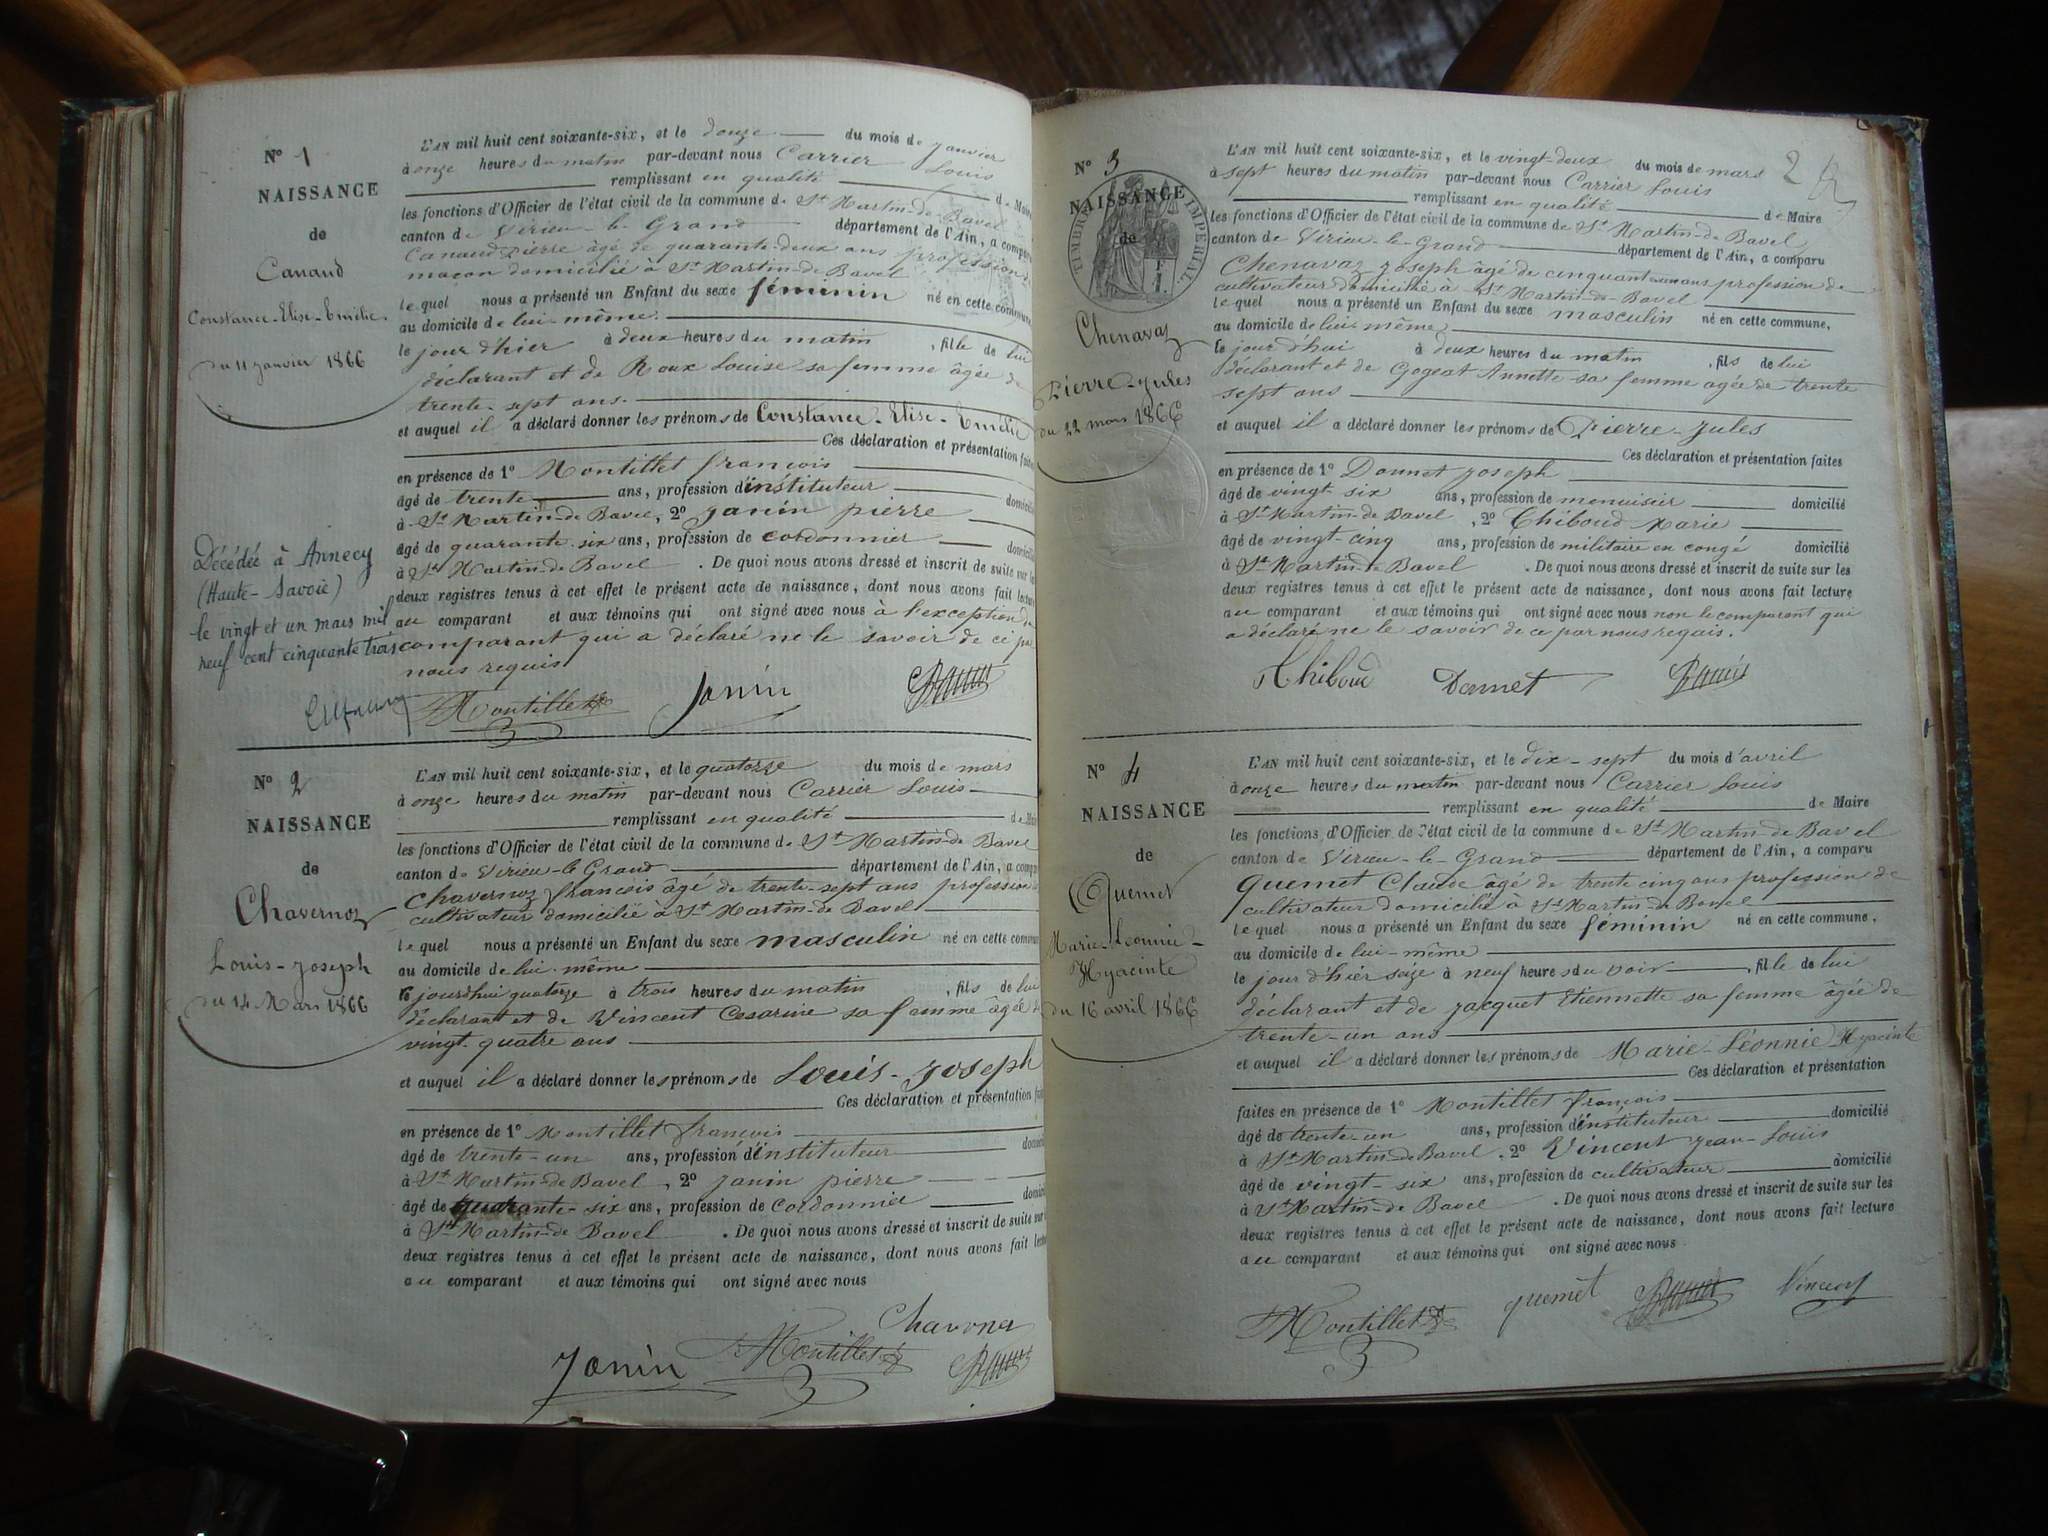 N° 1
NAISSANCE
de
Canaud
Constance-Elise-Emélie
du 11 janvier 1866
L'AN mil huit cent soixante-six, et le douze du mois de janvier
à onze heures du matin par-devant nous Carrier Louis
remplissant en qualité de Maire
les fonctions d'Officier de l'état civil de la commune de St Martin-de Bavel
canton de Virieu-le-Grand département de l'Ain, a comparu
Canaud Pierre âgé de quarante-deux ans profession de
maçon domicilié à St Martin-de Bavel
le quel nous a présenté un Enfant du sexe féminin né en cette commune,
au domicile de lui-même.
le jour d'hier à deux heures du matin, fille de lui
déclarant et de Roux Louise sa femme âgée de
trente-sept ans.
et auquel il a déclaré donner les prénoms de Constance-Elise-Emélie
Ces déclaration et présentation faites
en présence de 1° Montillet françois
âgé de trente ans, profession d'instituteur domicilié
à St Martin-de Bavel, 2° Janin pierre
âgé de quarante-six ans, profession de cordonnier domicilié
à St Martin-de Bavel. De quoi nous avons dressé et inscrit de suite sur les
deux registres tenus à cet effet le présent acte de naissance, dont nous avons fait lecture
au comparant et aux témoins qui ont signé avec nous à l'exception du
comparant qui a déclaré ne le savoir de ce par
nous requis
Décédée à Annecy
(Haute-Savoie)
le vingt et un mars mil
neuf cent cinquante trois
Montillet Janin
N° 2
NAISSANCE
de
Chavernoz
Louis-Joseph
du 14 Mars 1866
L'AN mil huit cent soixante-six, et le quatorze du mois de mars
à onze heures du matin par-devant nous Carrier Louis
remplissant en qualité de Maire
les fonctions d'Officier de l'état civil de la commune de St Martin-de Bavel
canton de Virieu-le Grand département de l'Ain, a comparu
Chavernoz francois âgé de trente-sept ans profession de
cultivateur domicilié à St Martin-de Bavel
le quel nous a présenté un Enfant du sexe masculin né en cette commune
au domicile de lui-même
le jourdhui quatorze à trois heures du matin, fils de lui
déclarant et de Vincent Cesarine sa femme âgée de
vingt-quatre ans
et auquel il a déclaré donner les prénoms de Louis-Joseph
Ces déclaration et présentation faites
en présence de 1° Montillet francois
âgé de trente-un ans, profession d'instituteur domicilié
à St Martin-de Bavel, 2° Janin pierre
âgé de quarante-six ans, profession de cordonnier domicilié
à St Martin-de Bavel. De quoi nous avons dressé et inscrit de suite sur les
deux registres tenus à cet effet le présent acte de naissance, dont nous avons fait lecture
au comparant et aux témoins qui ont signé avec nous
Janin Montillet
2
N° 3
NAISSANCE
de
TIMBRE IMPERIAL
Chenavaz
Pierre-Jules
du 22 mars 1866
L'AN mil huit cent soixante-six, et le vingt-deux du mois de mars
à sept heures du matin par-devant nous Carrier Louis
remplissant en qualité de Maire
les fonctions d'Officier de l'état civil de la commune de St Martin-de Bavel
canton de Virieu-le-Grand département de l'Ain, a comparu
Chenavaz Joseph âgé de cinquante ans profession de
cultivateur domicilié à St Martin-de-Bavel
le quel nous a présenté un Enfant du sexe masculin né en cette commune,
au domicile de lui-même
le jour d'hui à deux heures du matin, fils de lui
déclarant et de Gogeat Annette sa femme âgée de trente
sept ans
et auquel il a déclaré donner les prénoms de Pierre-Jules
Ces déclaration et présentation faites
en présence de 1° Donnet Joseph
âgé de vingt-six ans, profession de menuisier domicilié
à St Martin-de Bavel, 2° Thiboud Marie
âgé de vingt-cinq ans, profession de militaire en congé domicilié
à St Martin-de Bavel. De quoi nous avons dressé et inscrit de suite sur les
deux registres tenus à cet effet le présent acte de naissance, dont nous avons fait lecture
au comparant et aux témoins qui ont signé avec nous non le comparant qui
a déclaré ne le savoir de ce par nous requis.
Thiboud Donnet
N° 4
NAISSANCE
de
Quemet
Marie-Léonnie-
Hyacinte
du 16 avril 1866
L'AN mil huit cent soixante-six, et le dix-sept du mois d'avril
à onze heures du matin par-devant nous Carrier Louis
remplissant en qualité de Maire
les fonctions d'Officier de l'état civil de la commune de St Martin-de Bavel
canton de Virieu-le-Grand département de l'Ain, a comparu
Quemet Claude âgé de trente cinq ans profession de
cultivateur domicilié à St Martin-de Bavel
le quel nous a présenté un Enfant du sexe féminin né en cette commune,
au domicile de lui-même
le jour d'hier seize à neuf heures du soir, fille de lui
déclarant et de Jacquet Etiennette sa femme âgée de
trente-un ans
et auquel il a déclaré donner les prénoms de Marie-Léonnie Hyacinte
Ces déclaration et présentation
faites en présence de 1° Montillet françois
âgé de trente-un ans, profession d'instituteur domicilié
à St Martin-de Bavel, 2° Vincent Jean-Louis
âgé de vingt-six ans, profession de cultivateur domicilié
à St Martin-de Bavel. De quoi nous avons dressé et inscrit de suite sur les
deux registres tenus à cet effet le présent acte de naissance, dont nous avons fait lecture
au comparant et aux témoins qui ont signé avec nous
Montillet quemet Vincent